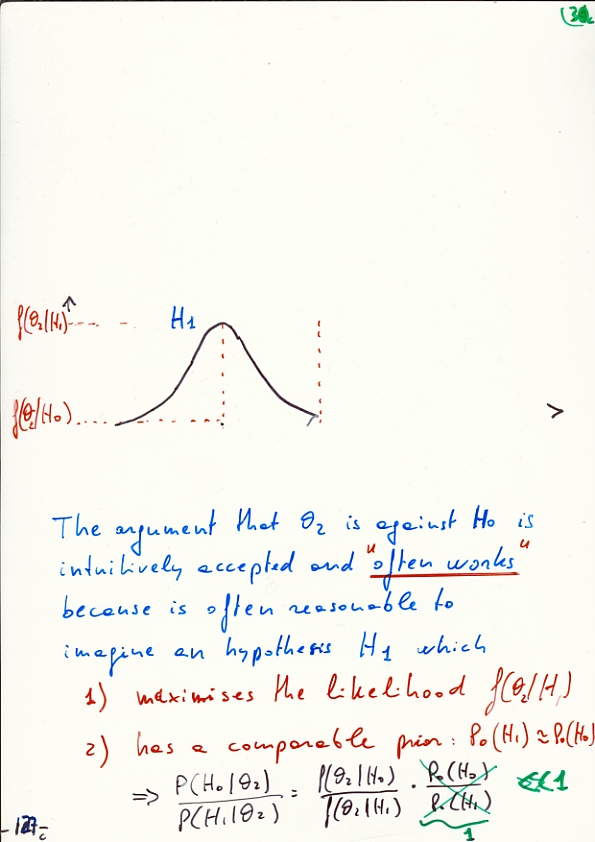 (30c
f(θ₂|H₁)
H₁
f(θ₂|H₀)
The argument that θ₂ is against H₀ is
intuitively accepted and "often works"
because is often reasonable to
imagine an hypothesis H₁ which
1) maximises the likelihood f(θ₂|H₁)
2) has a comparable prior: P₀(H₁) ≈ P₀(H₀)
⇒ P(H₀|θ₂) / P(H₁|θ₂) = f(θ₂|H₀) / f(θ₂|H₁) · P₀(H₀) / P₀(H₁) ≪ 1
1